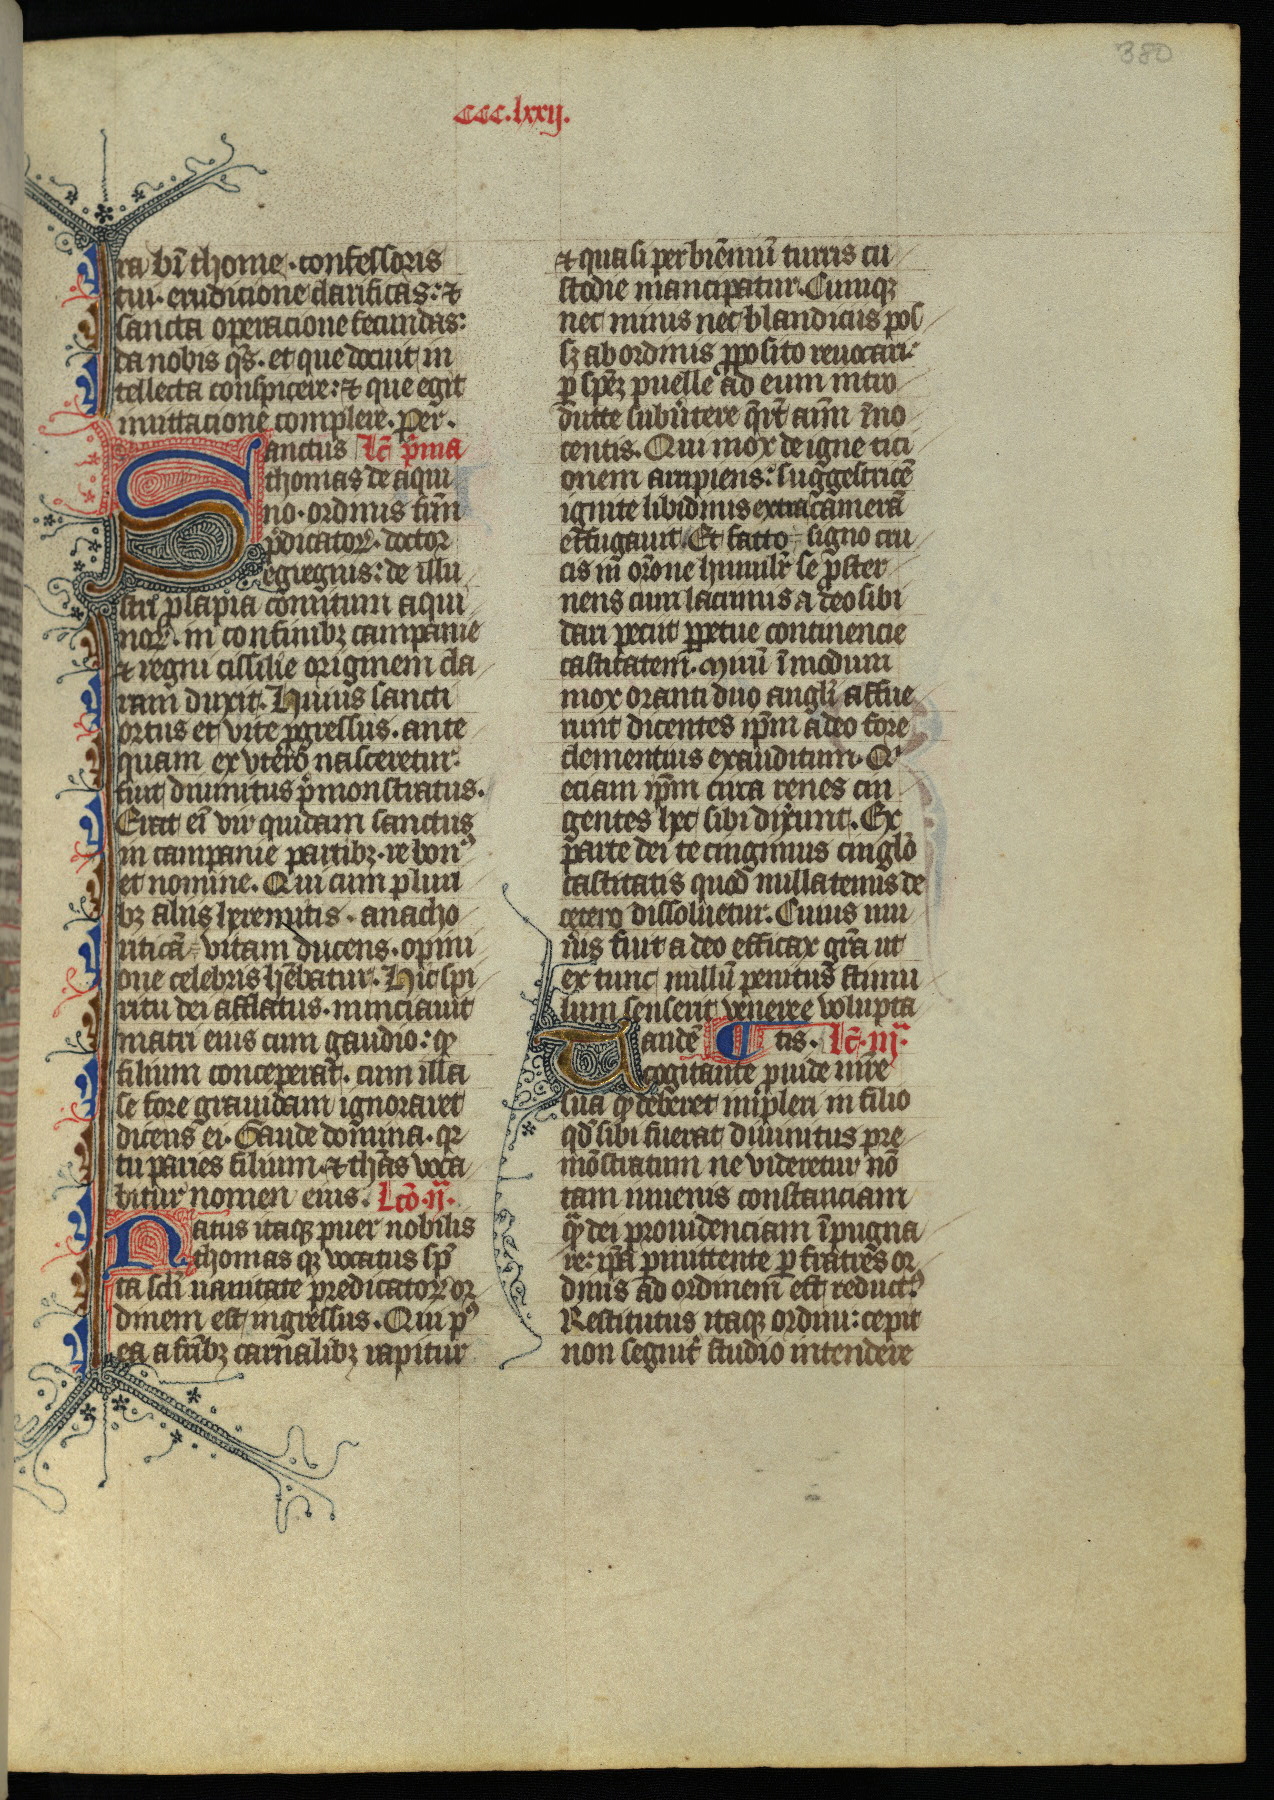 380
ccc.lxxij.
ra bi̅ thome . confessoris
tui . erudicione clarificas : ⁊
sancta operacione fecundas :
da nobis qs̅ . et que docuit in
tellecta conspicere : ⁊ que egit
imittacione complere . Per .
Sanctus Lc̅ p̅ma
thomas de aqui
no . ordinis frm̅
p̅dicatoꝝ . doctor
egregius : de illu
stri ꝓsapia comitum aqui
noꝝ . in confinibꝫ campanie
⁊ regni cissilie originem cla
ram duxit . Huius sancti
ortus et vite ꝓgressus . ante
quam ex vtero nasceretur
fuit diuinitus p̅monstratus .
Erat ei̅ vir quidam sanctus
in campanie partibꝫ . re bonꝰ
et nomine . Qui cum pluri
bꝫ aliis heremitis . anacho
ritica̅ vitam ducens . opini
one celebris he̅batur . Hic spi
ritu dei afflatus . nunciauit
matri eius cum gaudio : ꝙ
filium conceperat . cum illa
se fore grauidam ignoraret
dicens ei . Gaude domina . qr
tu paries filium . ⁊ thas̅ voca
bitur nomen eius . Lco̅ . ij .
Natus itaqꝫ puer nobilis
thomas qꝫ vocatus sp̅
ta scli̅ vanitate predicatoꝝ or
dinem est ingressus . Qui pꝰ
ea a fribꝫ carnalibꝫ rapitur
⁊ quasi per bie̅niu̅ turris cu
stodie mancipatur . Cumqꝫ
nec minis nec blandiciis pos
sꝫ ab ordinis ꝓposito reuocari :
p̅ spem puelle ad eum intro
ducte subuertere q̅rit aim̅ i̅no
centis . Qui mox de igne tici
onem arripiens : suggestrice̅
ignite libidinis extra camera̅
effugauit . Et facto signo cru
cis in or̅one humilr̅ se ꝓster
nens cum lacrimis a deo sibi
dari peciit ꝑpetue continencie
castitatem . Miru̅ i̅modum
mox oranti duo angli̅ affue
runt dicentes ip̅m a deo fore
clementius exauditum . Qi
eciam ip̅m circa renes cin
gentes hec sibi dixe̅unt . Ex
parte dei te cingimus cingl̅o
castitatis quod nullatenus de
cetero dissoluetur . Cuius mu
n̅is fuit adeo efficax gr̅a ut
ex tunc nullu̅ penitus stimu
lum senserit veneree volupta
Aande̅ tis . Lc̅ . iij .
cogitante pride mr̅e
sua ꝙ deberet impleri in filio
qd̅ sibi fuerat diuinitus pre
mo̅stratum ne videretur no̅
tam iuuenis constanciam
q̅ dei prouidenciam i̅pugna
re : ip̅a ꝑmittente ꝑ fratres or
dinis ad ordinem est reductꝰ
Restitutus itaqꝫ ordini : cepit
non segnit̅ studio intendere